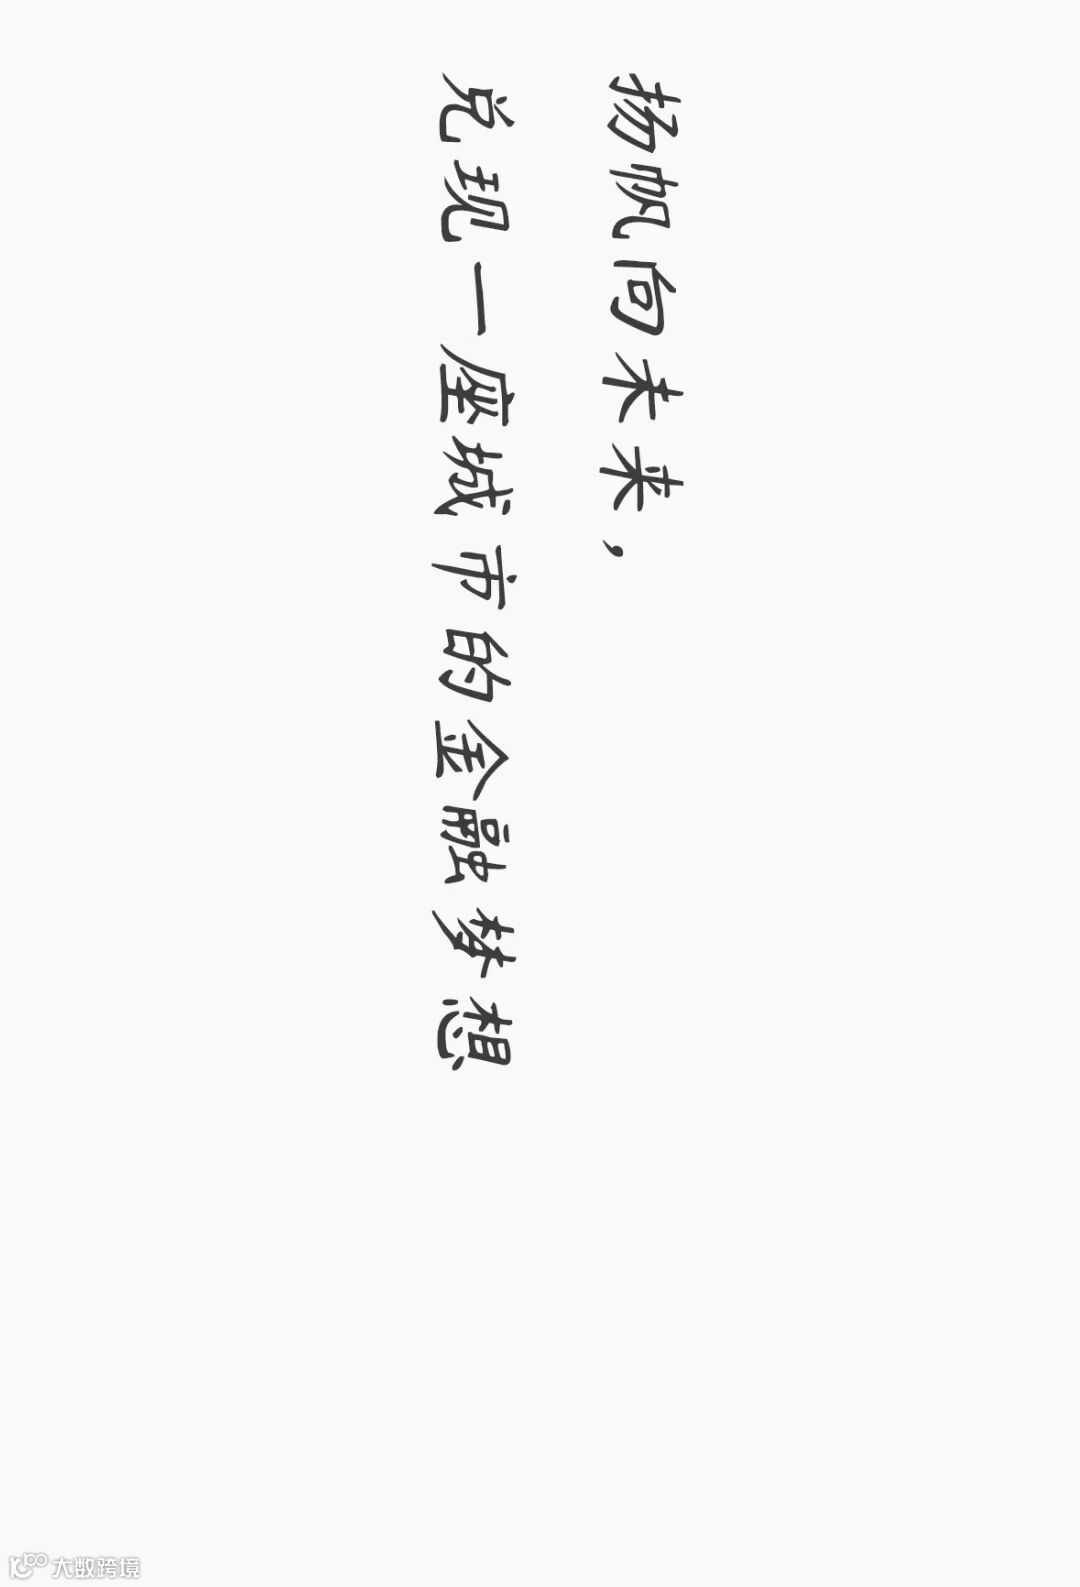 扬帆向未来，
兑现一座城市的金融梦想
大数跨境